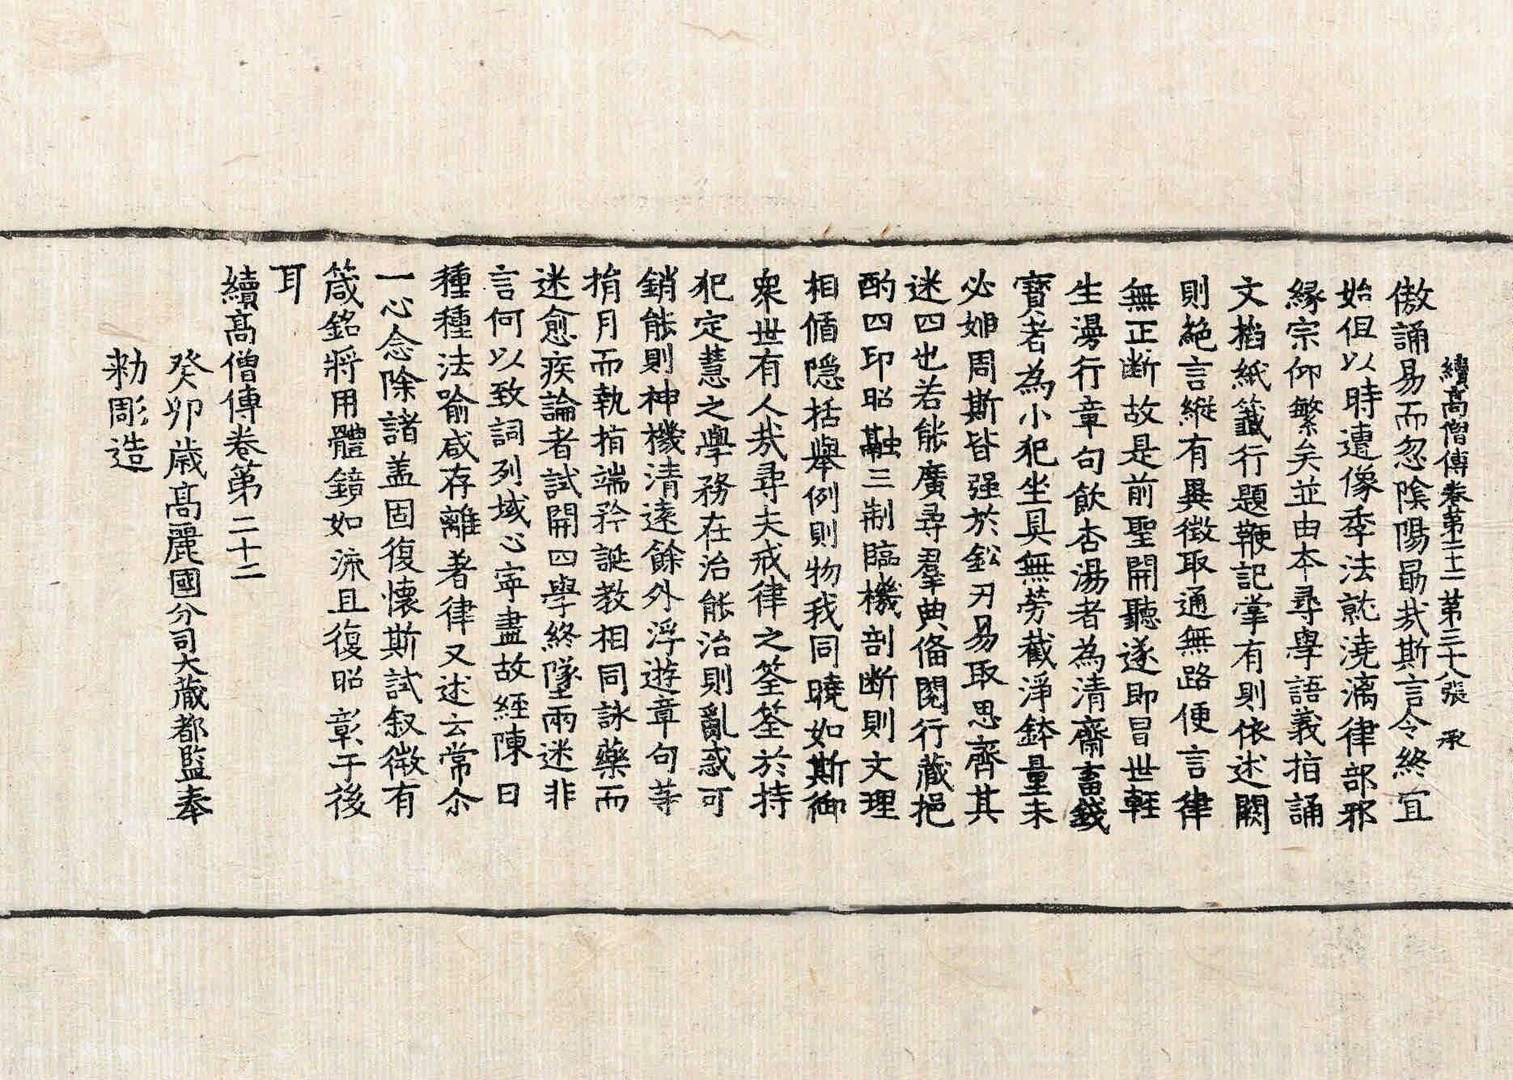 續高僧傳卷第二十二 第三十八張 承
傲誦易而忽陰陽勗㢤斯言令終宜
始但以時遭像季法就澆漓律部邪
緣宗仰繁矣並由本尋學語義指誦
文㨂紙籤行題鞭記掌有則依述闕
則絶言縱有異徵取通無路便言律
無正断故是前聖開聽遂即冒世輕
生漫行章句飲杏湯者為清齋畜錢
寶者為小犯坐具無勞截淨鉢量未
必姬周斯皆强於鈆刃易取思齊其
迷四也若能廣尋羣典俻閱行藏挹
酌四印昭融三制臨機剖断則文理
相循隱括舉例則物我同曉如斯御
衆世有人㢤尋夫戒律之筌筌於持
犯定慧之學務在治能治則亂惑可
銷能則神機清遠餘外浮遊章句等
指月而執指端矜誕教相同詠藥而
迷愈疾論者試開四學終墜兩迷非
言何以致詞列域心寧盡故經陳日
種種法喻咸存離著律又述云常尒
一心念除諸盖固復懷斯試叙微有
箴銘將用體鏡如流且復昭彰于後
耳
續高僧傳卷第二十二
癸卯歲高麗國分司大藏都監奉
勑彫造